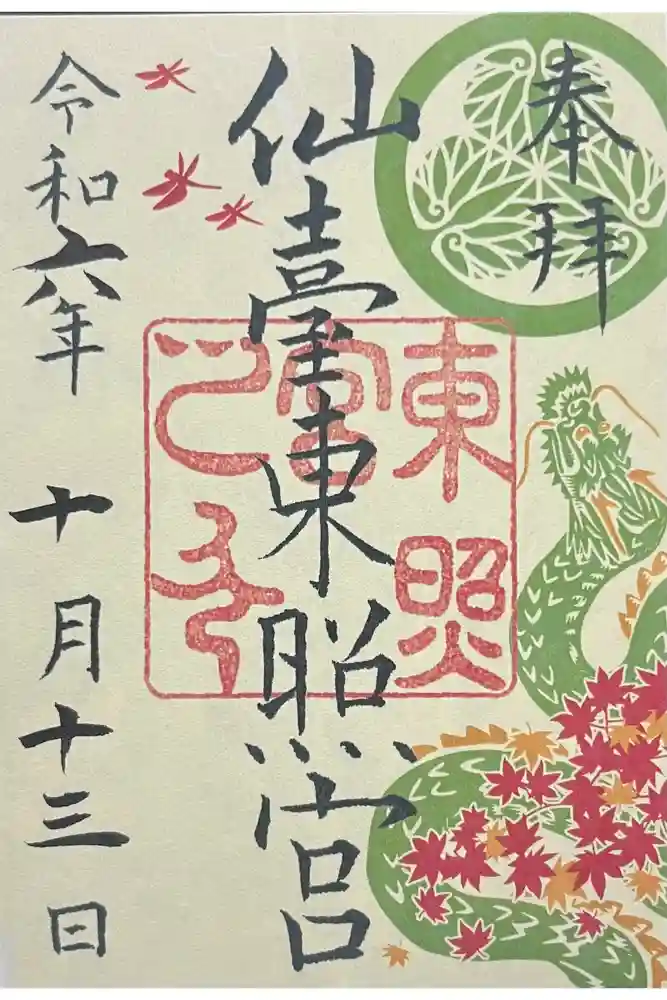 奉拝
仙臺東照宮
東照
宮
令和六年十月十三日